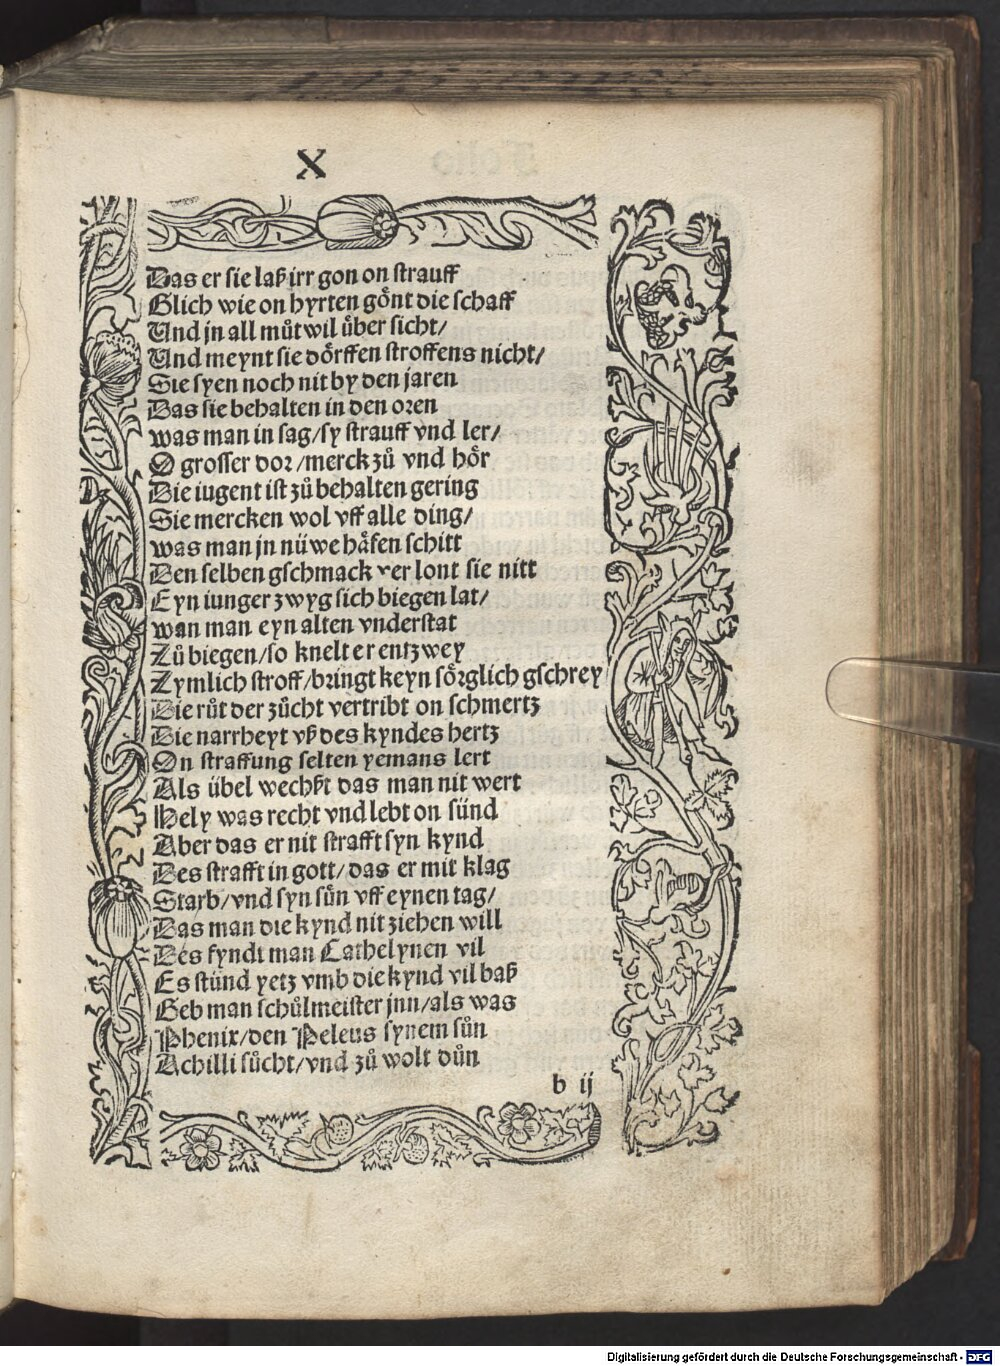 X
Das er sie laß irr gon on strauff
Glich wie on hyrten gönt die schaff
Und jn all můtwil über sicht/
Und meynt sie dörffen stroffens nicht/
Sie syen noch nit by den jaren
Das sie behalten in den oren
was man in sag/sy strauff vnd ler/
O grosser dor/merck zů vnd hör
Die iugent ist zů behalten gering
Sie mercken wol vff alle ding/
was man jn nüwe häfen schitt
Den selben gschmack ver lont sie nitt
Eyn iunger zwyg sich biegen lat/
wan man eyn alten vnderstat
Zů biegen/so knelt er entzwey
Zymlich stroff/bringt keyn sörglich gschrey
Die růt der zücht vertribt on schmertz
Die narrheyt vß des kyndes hertz
On straffung selten yemans lert
Als übel wechßt das man nit wert
Hely was recht vnd lebt on sünd
Aber das er nit strafft syn kynd
Des strafft in gott/das er mit klag
Starb/vnd syn sün vff eynen tag/
Das man die kynd nit ziehen will
Des fyndt man Cathelynen vil
Es stünd yetz vmb die kynd vil baß
Geb man schůlmeister jnn/als was
Phenix/den Peleus synem sůn
Achilli sůcht/vnd zů wolt důn
b ij
Digitalisierung gefördert durch die Deutsche Forschungsgemeinschaft - DFG